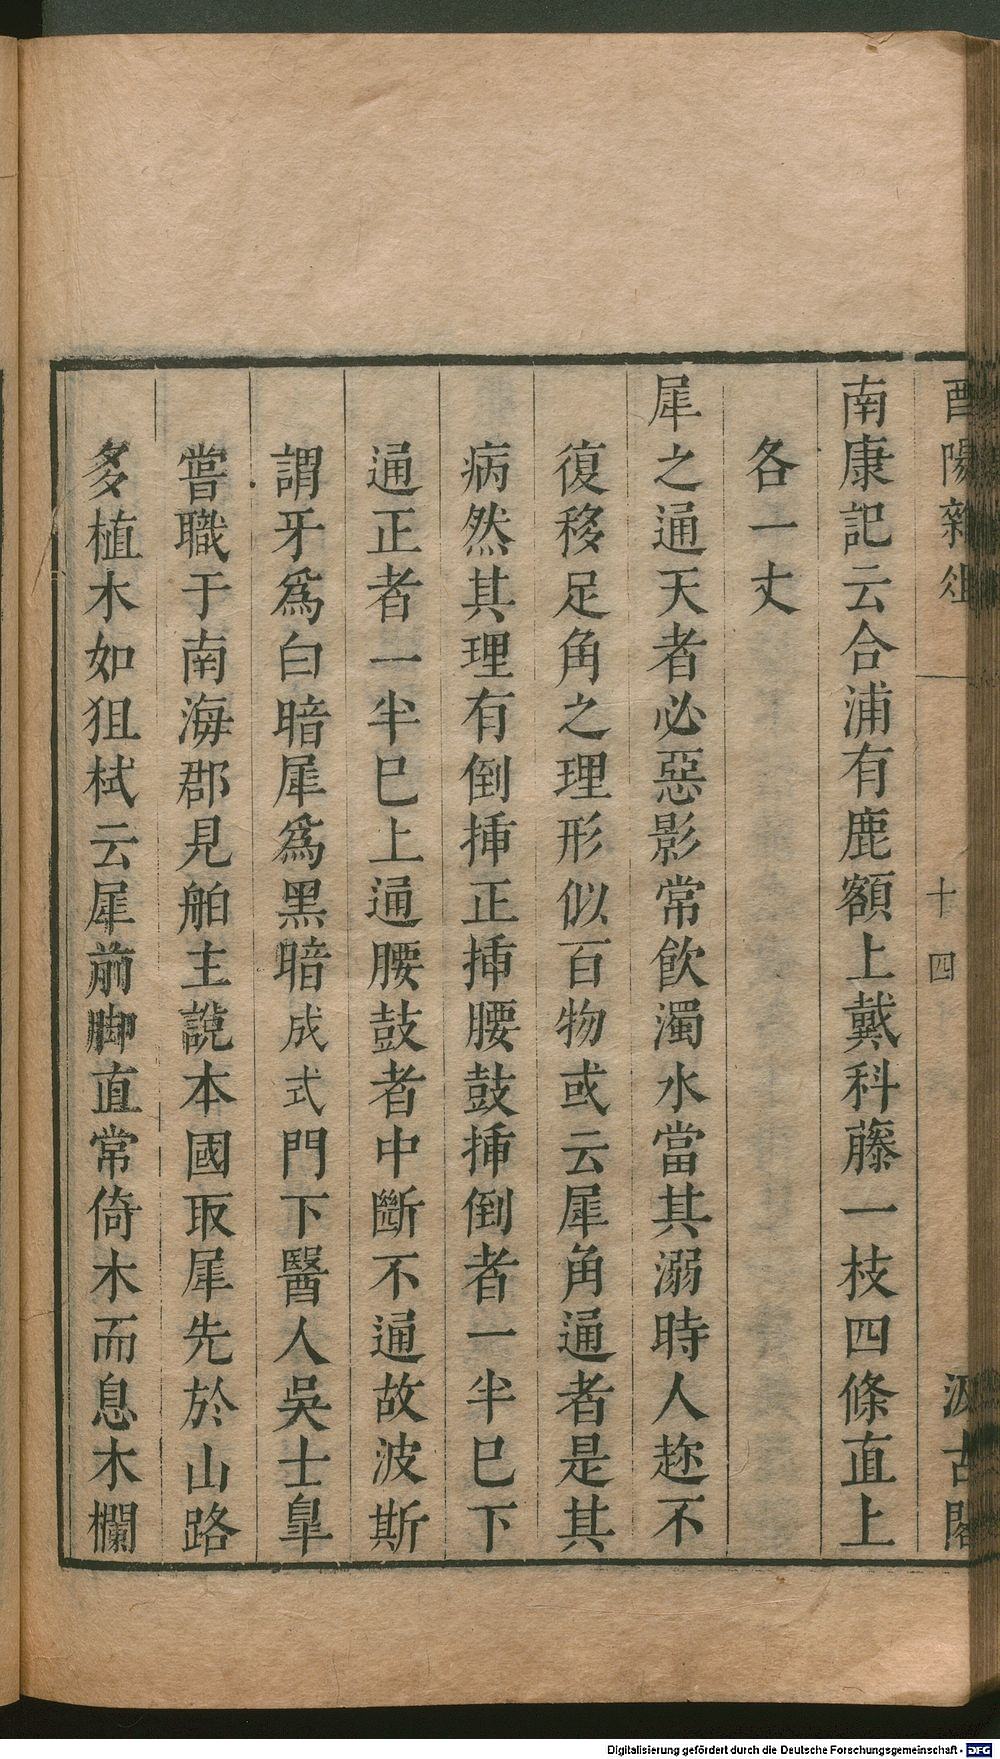 酉陽雜俎
十四
汲古閣
南康記云合浦有鹿額上戴科藤一枝四條直上
各一丈
犀之通天者必惡影常飲濁水當其溺時人趂不
復移足角之理形似百物或云犀角通者是其
病然其理有倒揷正揷腰鼓揷倒者一半巳下
通正者一半巳上通腰鼓者中斷不通故波斯
謂牙爲白暗犀爲黑暗成式門下醫人吳士臯
嘗職于南海郡見舶主說本國取犀先於山路
多植木如狙栻云犀前脚直常倚木而息木欄
Digitalisierung gefördert durch die Deutsche Forschungsgemeinschaft - DFG